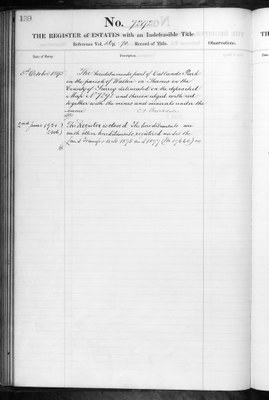 139
No. 7292
THE REGISTER of ESTATES with an Indefeasible Title
Reference Vol. Record of Title.
Observations.
Date of Entry
Description
October 189
The hereditaments part of Oatlands Park
in the parish of Walton on Thames in the
County of Surrey delineated on the deposited
Map No 7292 and thereon edged with red
together with the mines and minerals under the
same
June
The Register is closed. The hereditaments
with other hereditaments registered under the
Land Transfer Acts 1875 and 1897